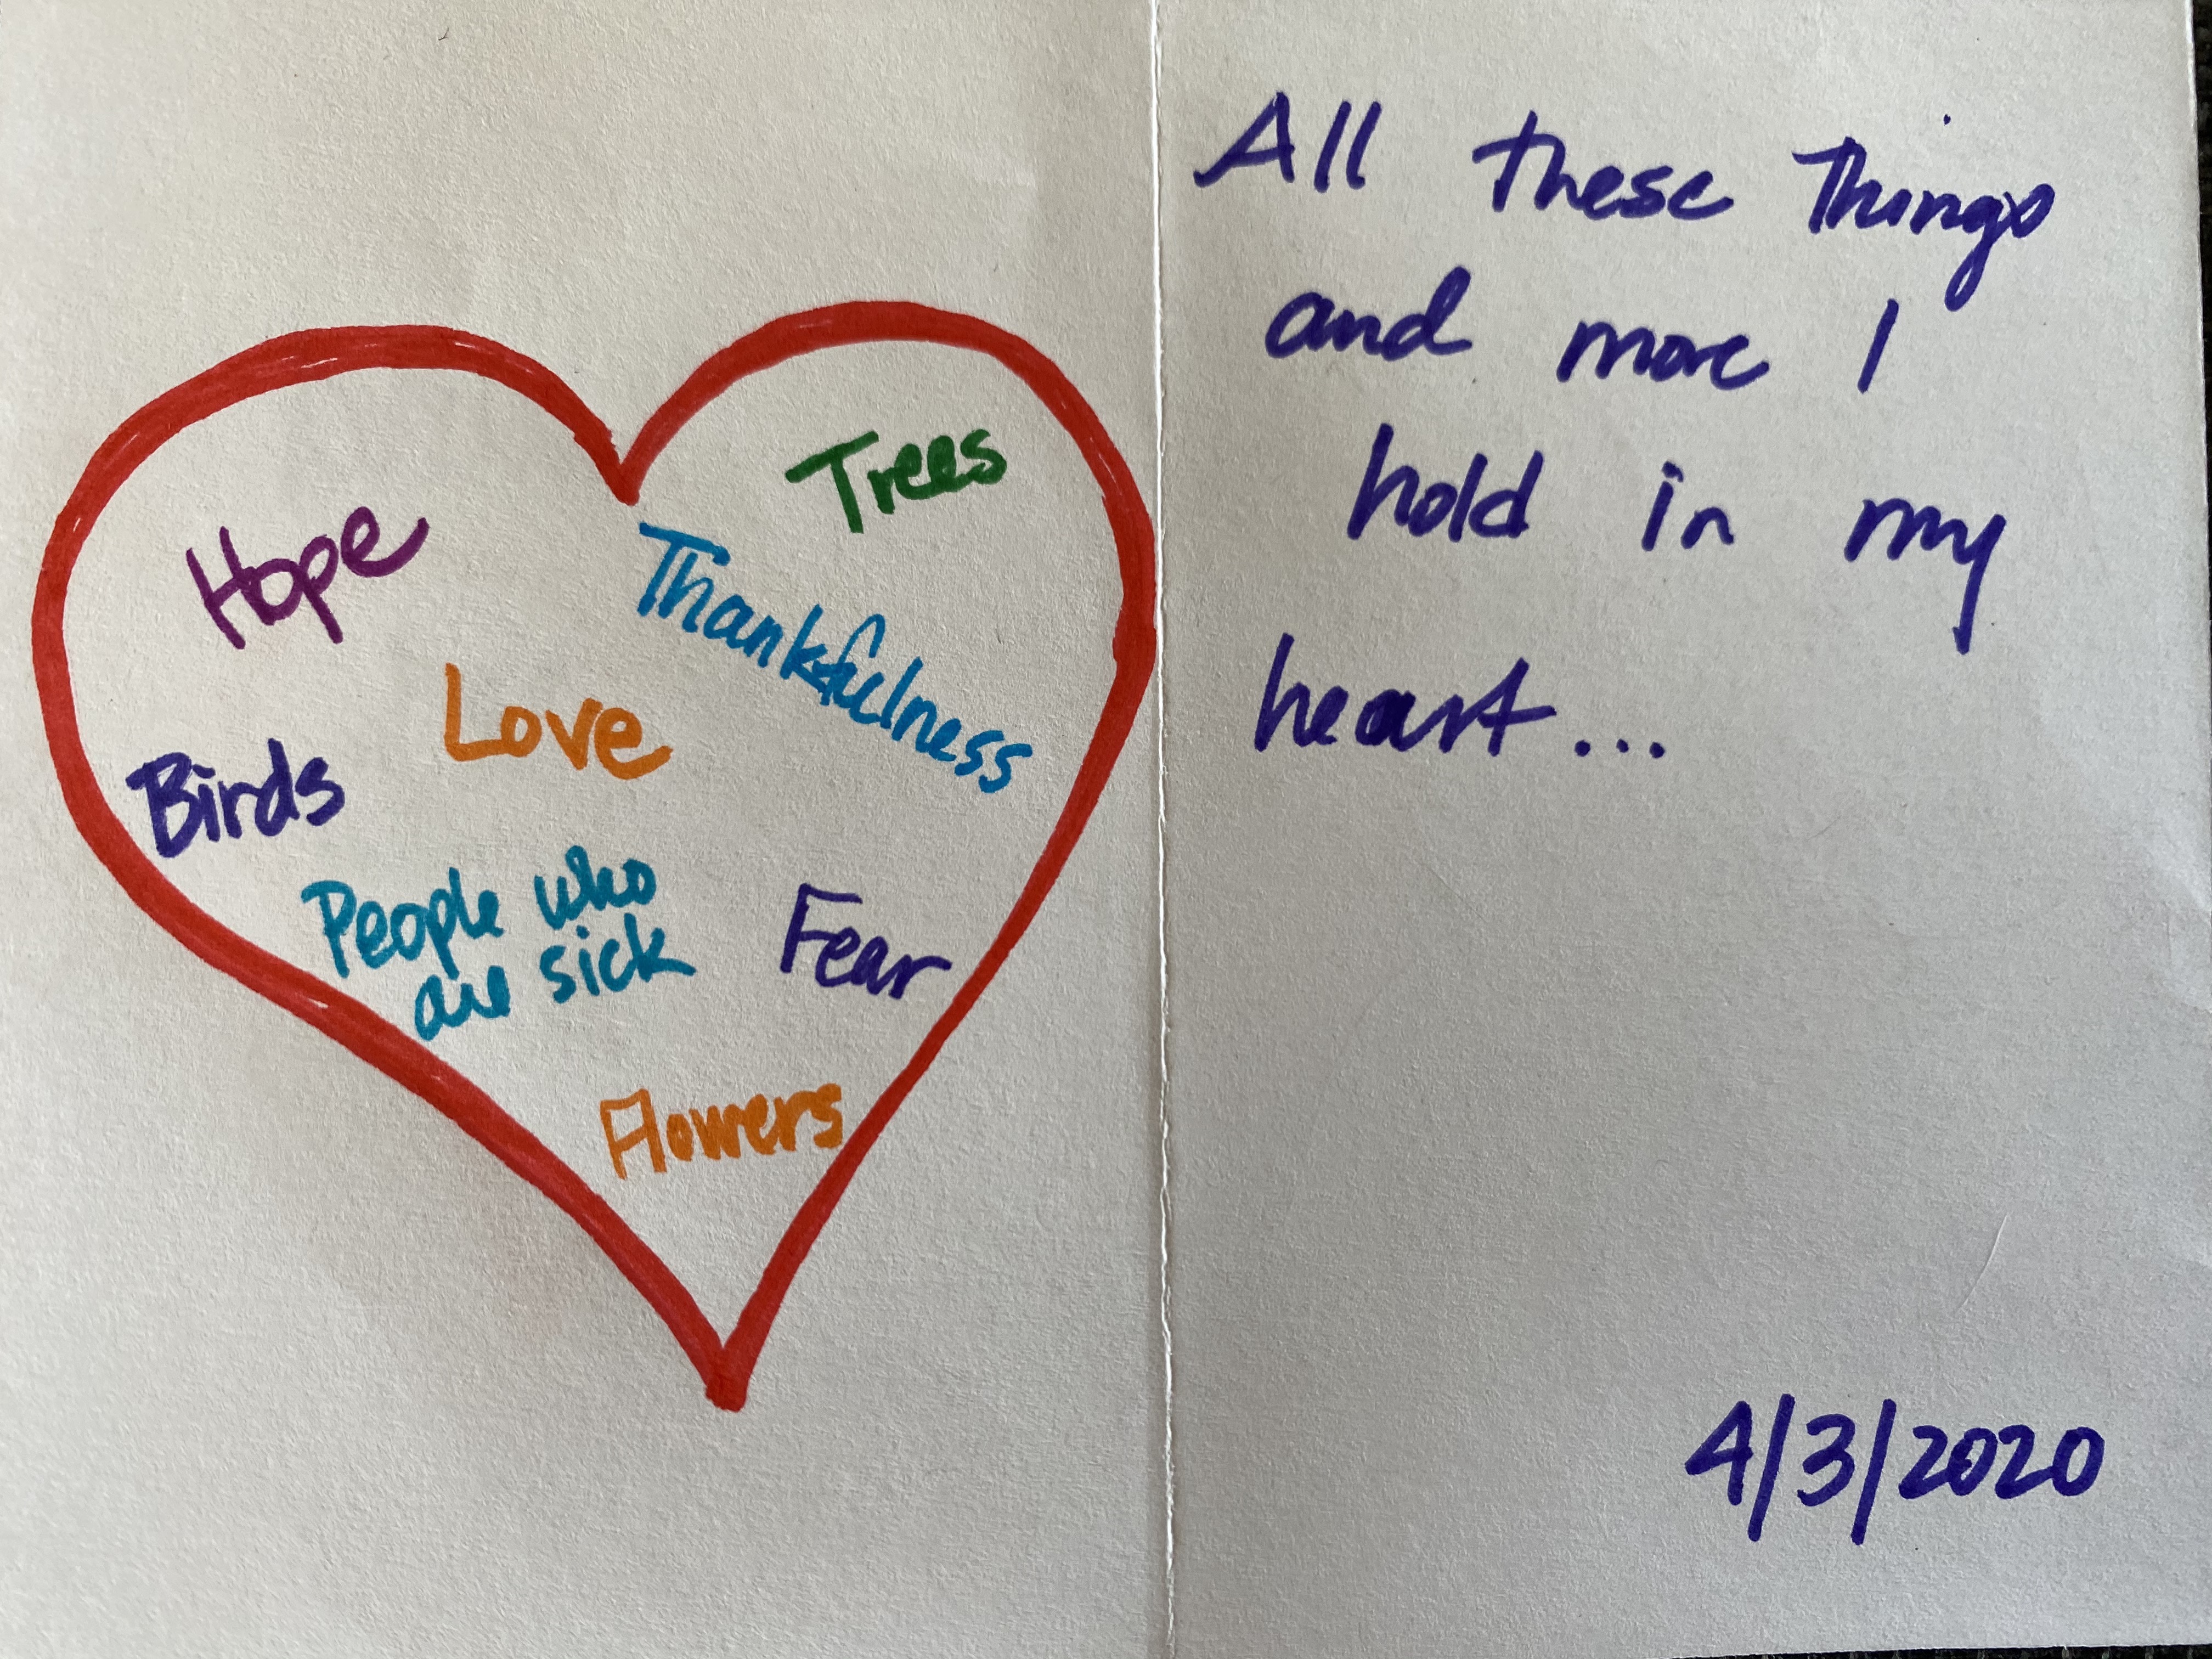 Hope
Trees
Thankfulness
Love
Birds
People who
are sick
Fear
Flowers
All these things
and more I
hold in my
heart...
4/3/2020